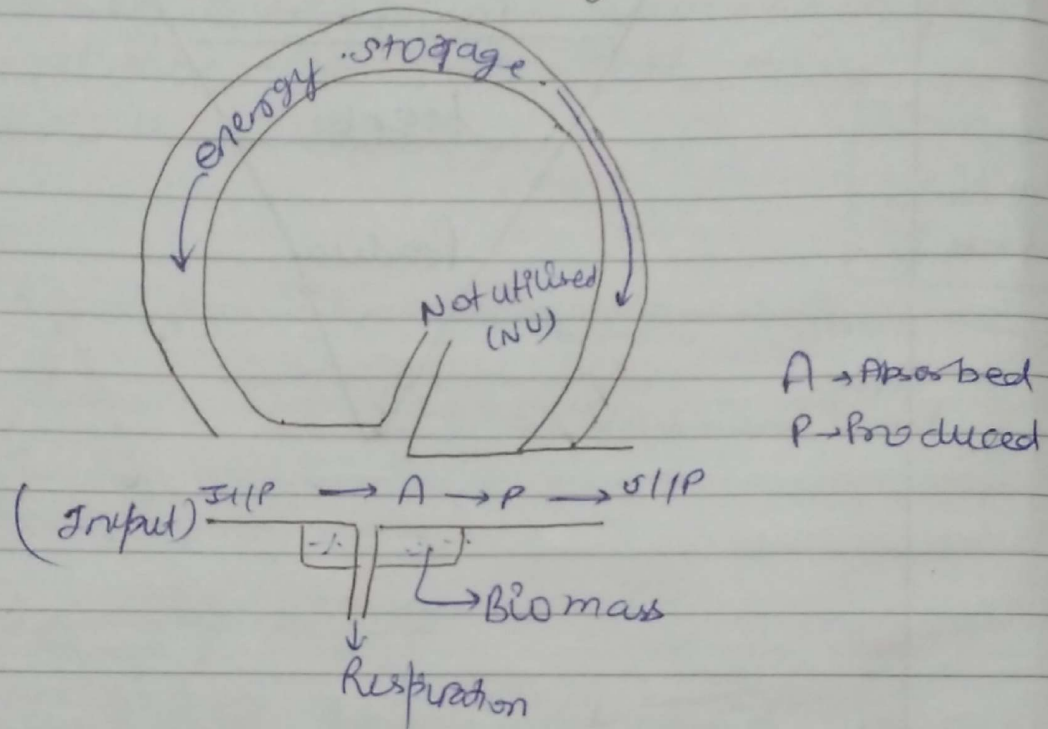 energy storage
Not utilised
(NU)
A → Absorbed
P → Produced
(Input) I/P → A → P → O/P
Biomass
Respiration